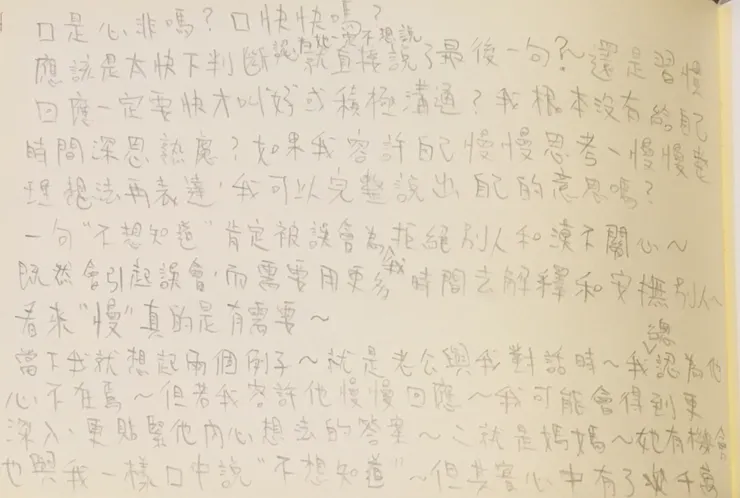 口是心非嗎？口快快嗎？
應該是太快下判斷認有她一定不想說就直接說了最後一句？～還是習慣
回應一定要快才叫好或積極溝通？我根本沒有給自己
時間深思熟慮？如果我容許自己慢慢思考－慢慢整
理想法再表達，我可以完整說出自己的意思嗎？
一句“不想知道”肯定被誤會為拒絕別人和漠不關心～
既然會引起誤會，而需要用更多我時間去解釋和安撫別人～
看來“慢”真的是有需要～
當下我就想起兩個例子～就是老公與我對話時～我總認為他
心不在焉～但若我容許他慢慢回應～我可能會得到更
深入，更貼緊他內心想法的答案～二就是媽媽～她有機會
也與我一樣口中說“不想知道”～但其實心中有了千萬